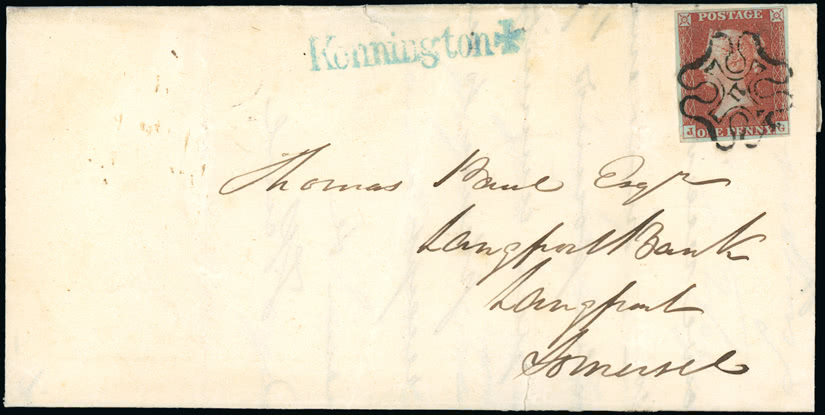 Kennington
POSTAGE
J ONE PENNY. G
Thomas Paul Esqr
Langport Bank
Langport
Somerset